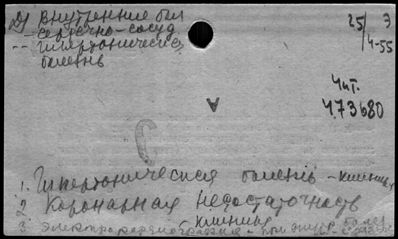 2) Внутренние бол
– сердечно-сосуд
-- гипертоническая
болезнь
25/3
4-55
Чит.
473680
1. Гипертоническая болезнь – клиника
2. Коронарная недостаточность
клиника
3. Электрокардиография – при гипер. болез